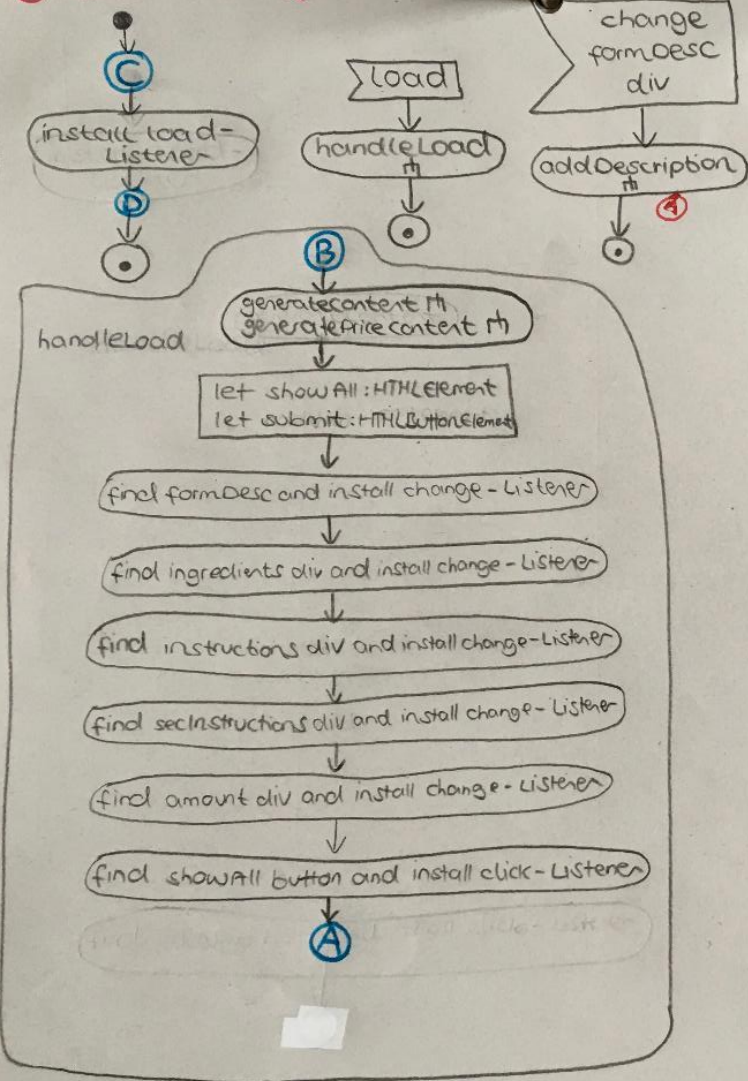 C
install load-
Listener
D
load
handleLoad
change
formDesc
div
addDescription
B
handleLoad
generatecontent
generatePricecontent
let showAll:HTMLElement
let submit:HTMLButtonElement
find formDesc and install change-Listener
find ingredients div and install change-Listener
find instructions div and install change-Listener
find secInstructions div and install change-Listener
find amount div and install change-Listener
find showAll button and install click-Listener
A